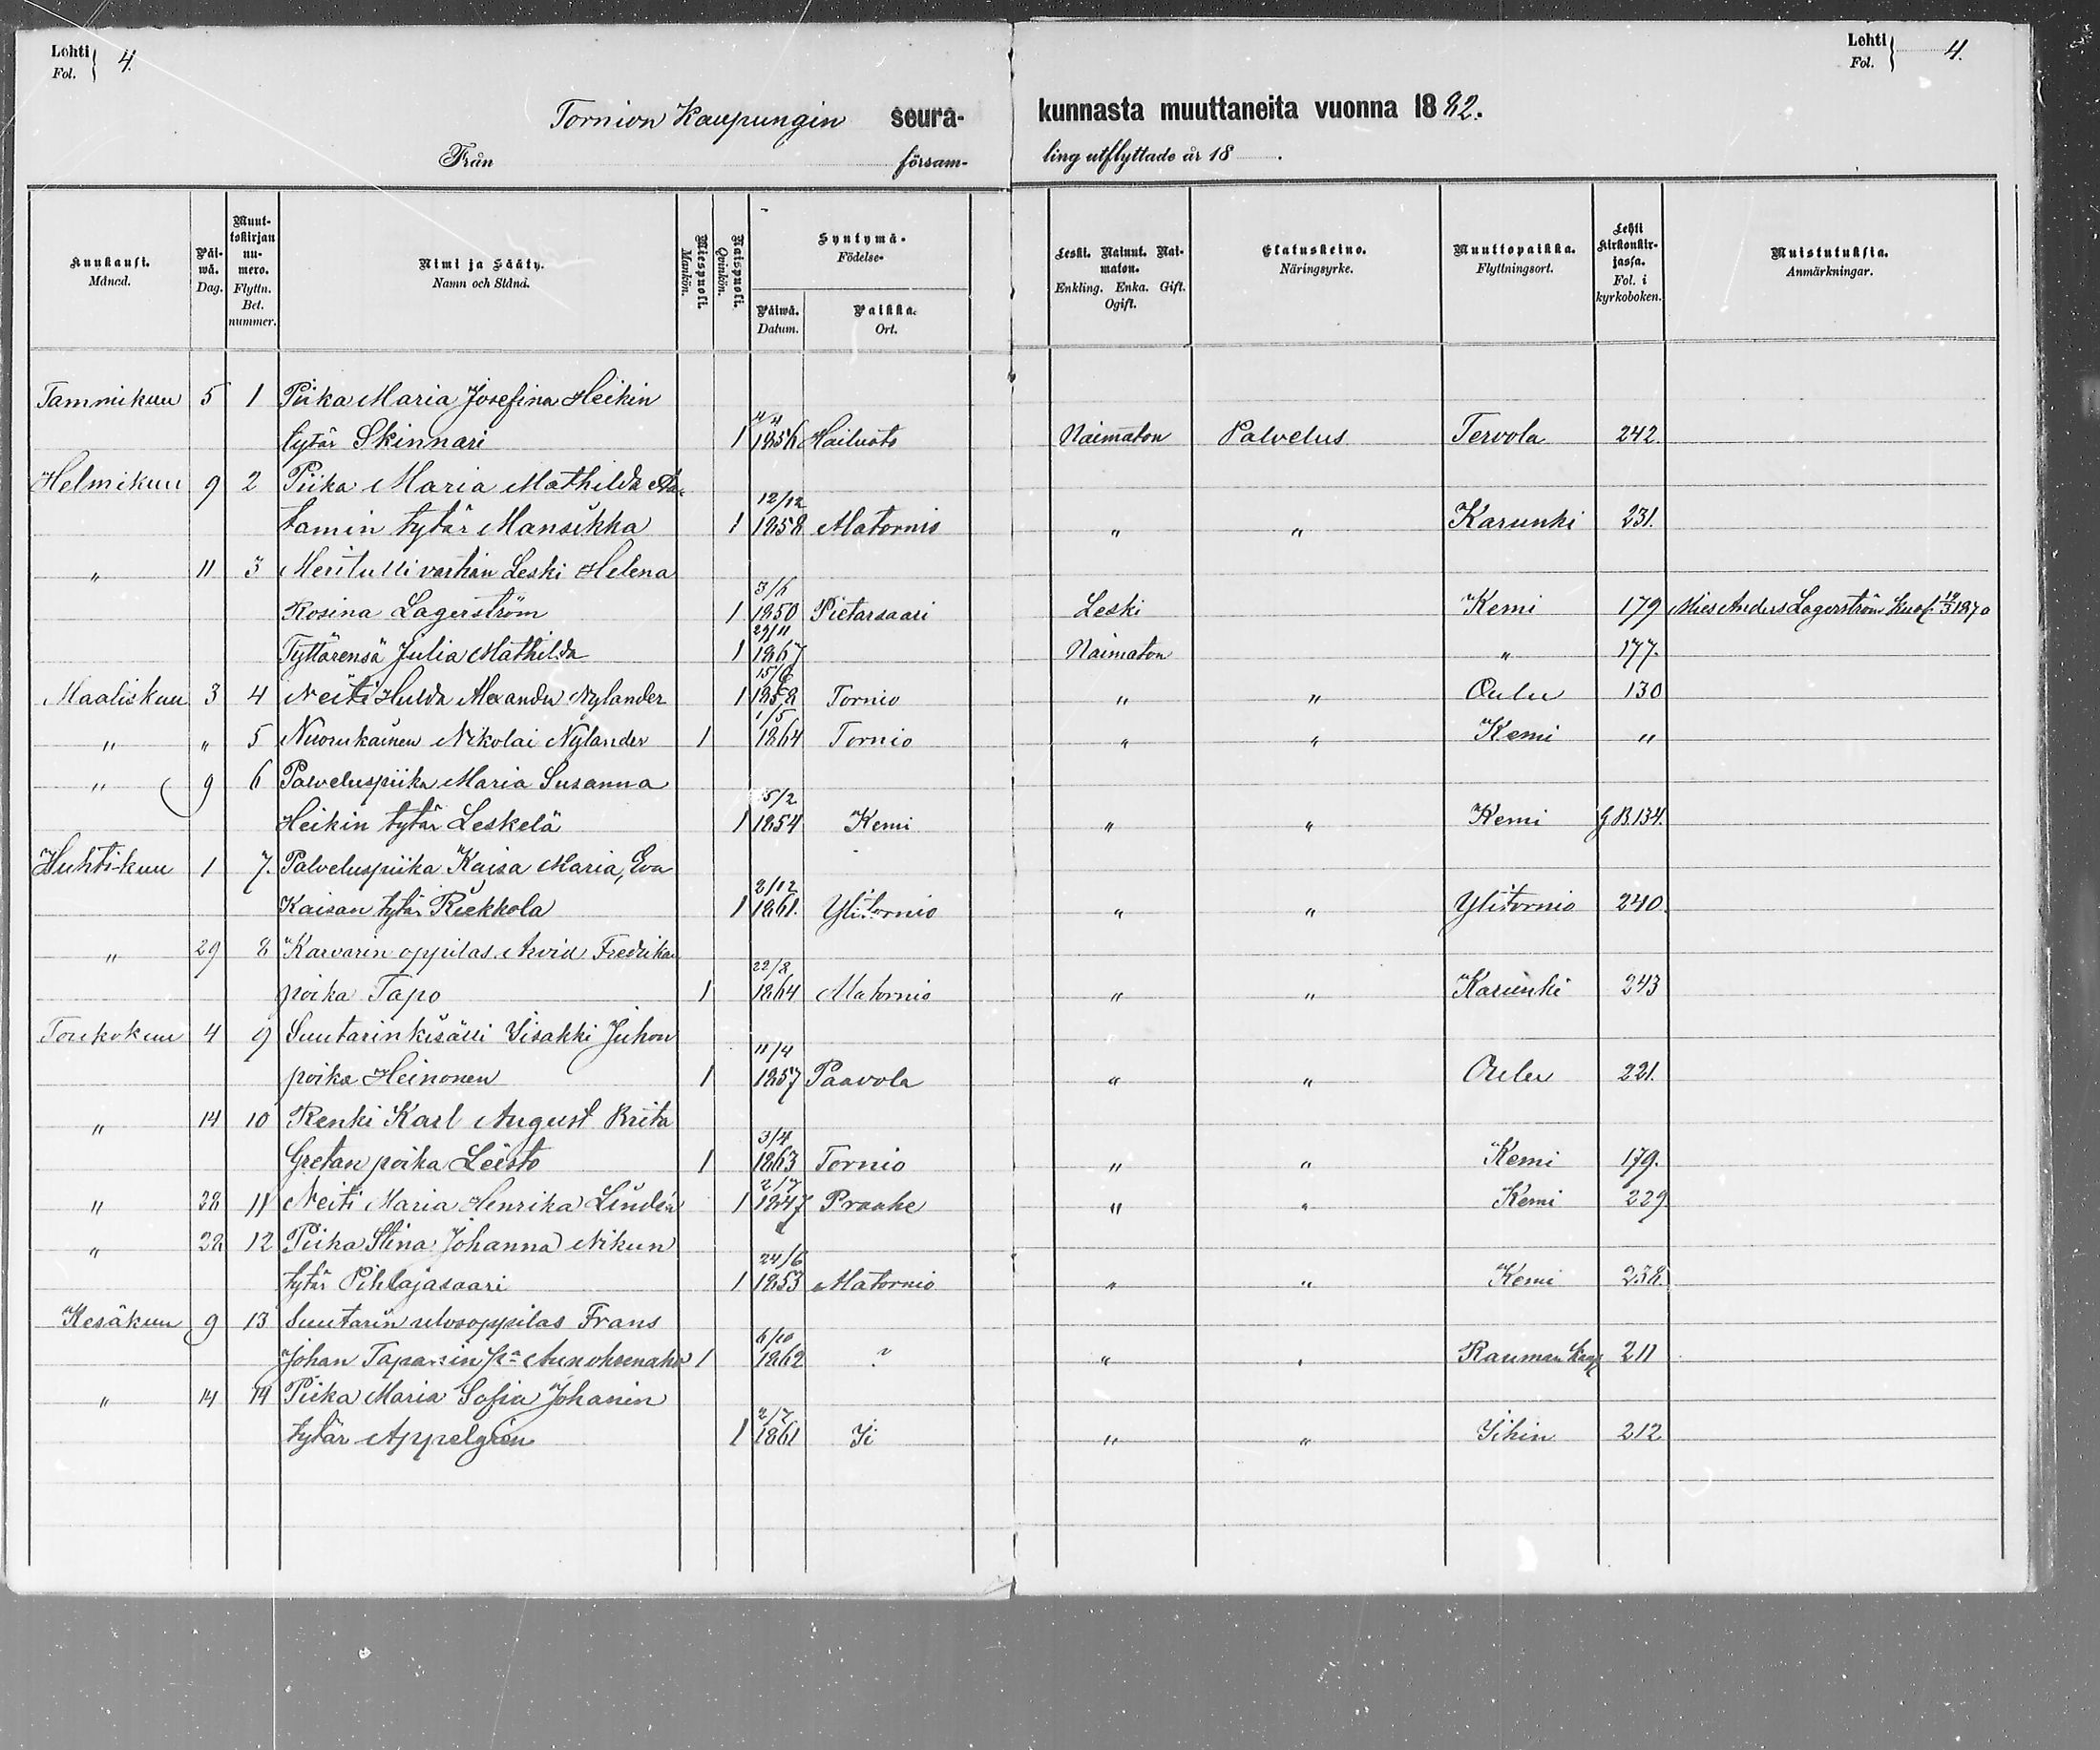 Lehti Fol. } 4.
Lehti Fol. } 4.
Tornion Kaupungin seura- kunnasta muuttaneita vuonna 1882.
Från församling utflyttade år 18 .
Kuukausi. Månad.
Päiwä. Dag.
Muuttokirjan numero. Flyttn. Bet. nummer.
Nimi ja Sääty. Namn och Stånd.
Miespuoli. Mankön.
Naispuoli. Qvinkön.
Syntymä- Födelse-
Päiwä. Datum.
Paikka. Ort.
Leski. Nainut. Naimaton. Enkling. Enka. Gift. Ogift.
Elatuskeino. Näringsyrke.
Muuttopaikka. Flyttningsort.
Lehti kirkonkirjassa. Fol. i kyrkoboken.
Muistutuksia. Anmärkningar.
Tammikuu 5 1 Piika Maria Josefina Heikin
tytär Skinnari 1 1856 Hailuoto Naimaton Palvelus Tervola 242.
Helmikuu 9 2 Piika Maria Mathilda Aa-
tamin tytär Mansikka 1 12/12 1858 Alatornio " " Karunki 231.
" 11 3 Meritullivartian Leski Helena
Rosina Lagerström 1 3/6 1850 Pietarsaari Leski Kemi 179 Mies Anders Lagerström kuol. 1870
Tyttärensä Julia Mathilda 1 29/11 1867 Naimaton " 177.
Maaliskuu 3 4 Neiti Hulda Alexandra Nylander 1 15/6 1858 Tornio " " Oulu 130
" " 5 Nuorukainen Nikolai Nylander 1 1/5 1864 Tornio " " Kemi "
" 9 6 Palveluspiika Maria Susanna
Heikin tytär Leskelä 1 5/2 1854 Kemi " " Kemi G.B. 134.
Huhtikuu 1 7. Palveluspiika Kaisa Maria, Eva
Kaisan tytär Riekkola 1 2/12 1861. Ylitornio " " Ylitornio 240.
" 29 8 Karvarin oppilas Arvid Fredrika
poika Tapo 1 22/8 1864 Alatornio " " Karunki 243
Toukokuu 4 9 Suutarinkisälli Iisakki Juhon
poika Heinonen 1 11/4 1857 Paavola " " Oulu 221.
" 14 10 Renki Karl August Brita
Gretan poika Leisto 1 3/4 1863 Tornio " " Kemi 179.
" 28 11 Neiti Maria Henrika Lindén 1 2/7 1847 Praahe " " Kemi 229
" 28 12 Piika Stina Johanna Nikun
tytär Pihlajasaari 1 24/6 1853 Alatornio " " Kemi 238.
Kesäkuu 9 13 Suutarin ulosoppilas Frans
Johan Taparsin 1 6/10 1862 ? " " Rauman 211
" 14 14 Piika Maria Sofia Johanin
tytär Appelgrèn 1 2/7 1861 Ii " " Iihin 212